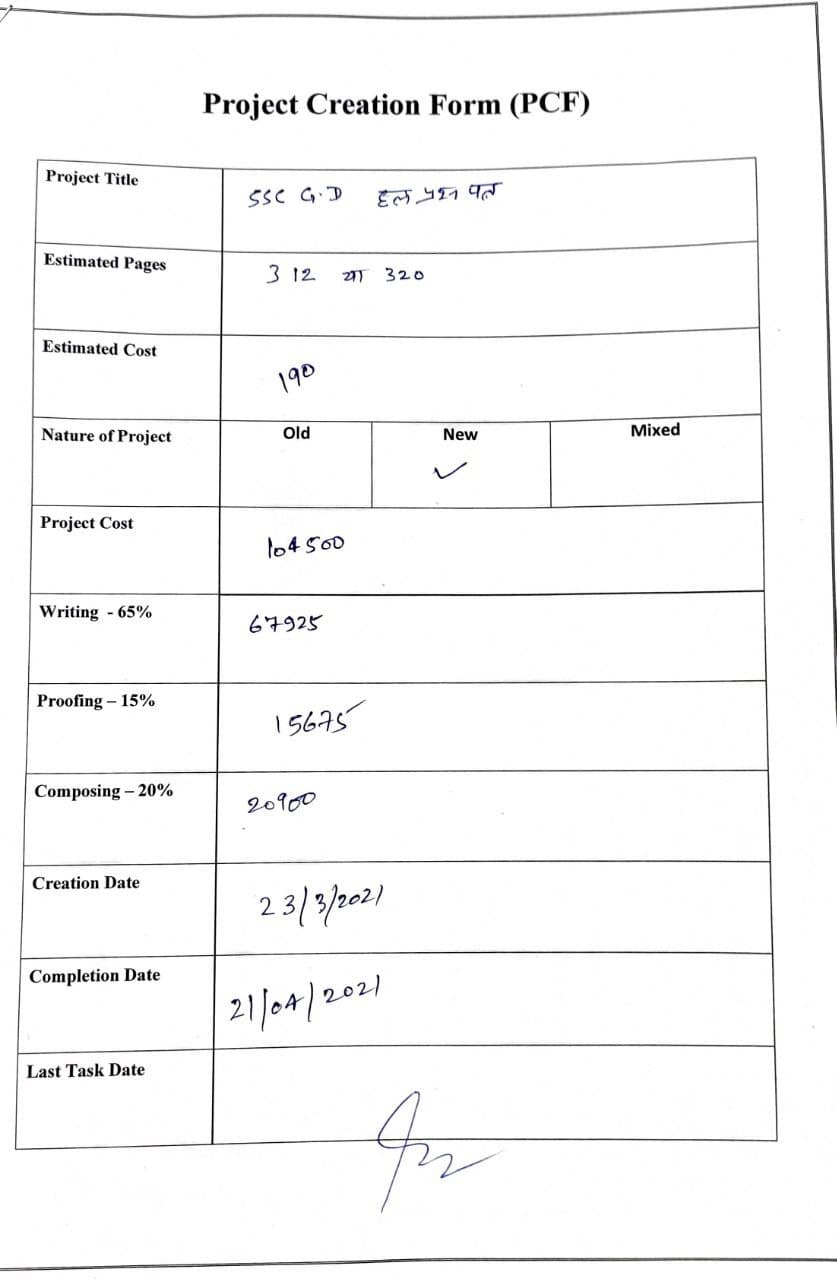 Project Creation Form (PCF)
Project Title SSC G.D हल प्रश्न पत्र
Estimated Pages 312 या 320
Estimated Cost 190
Nature of Project Old New ✓ Mixed
Project Cost 104500
Writing - 65% 67925
Proofing – 15% 15675
Composing – 20% 20900
Creation Date 23/3/2021
Completion Date 21/04/2021
Last Task Date